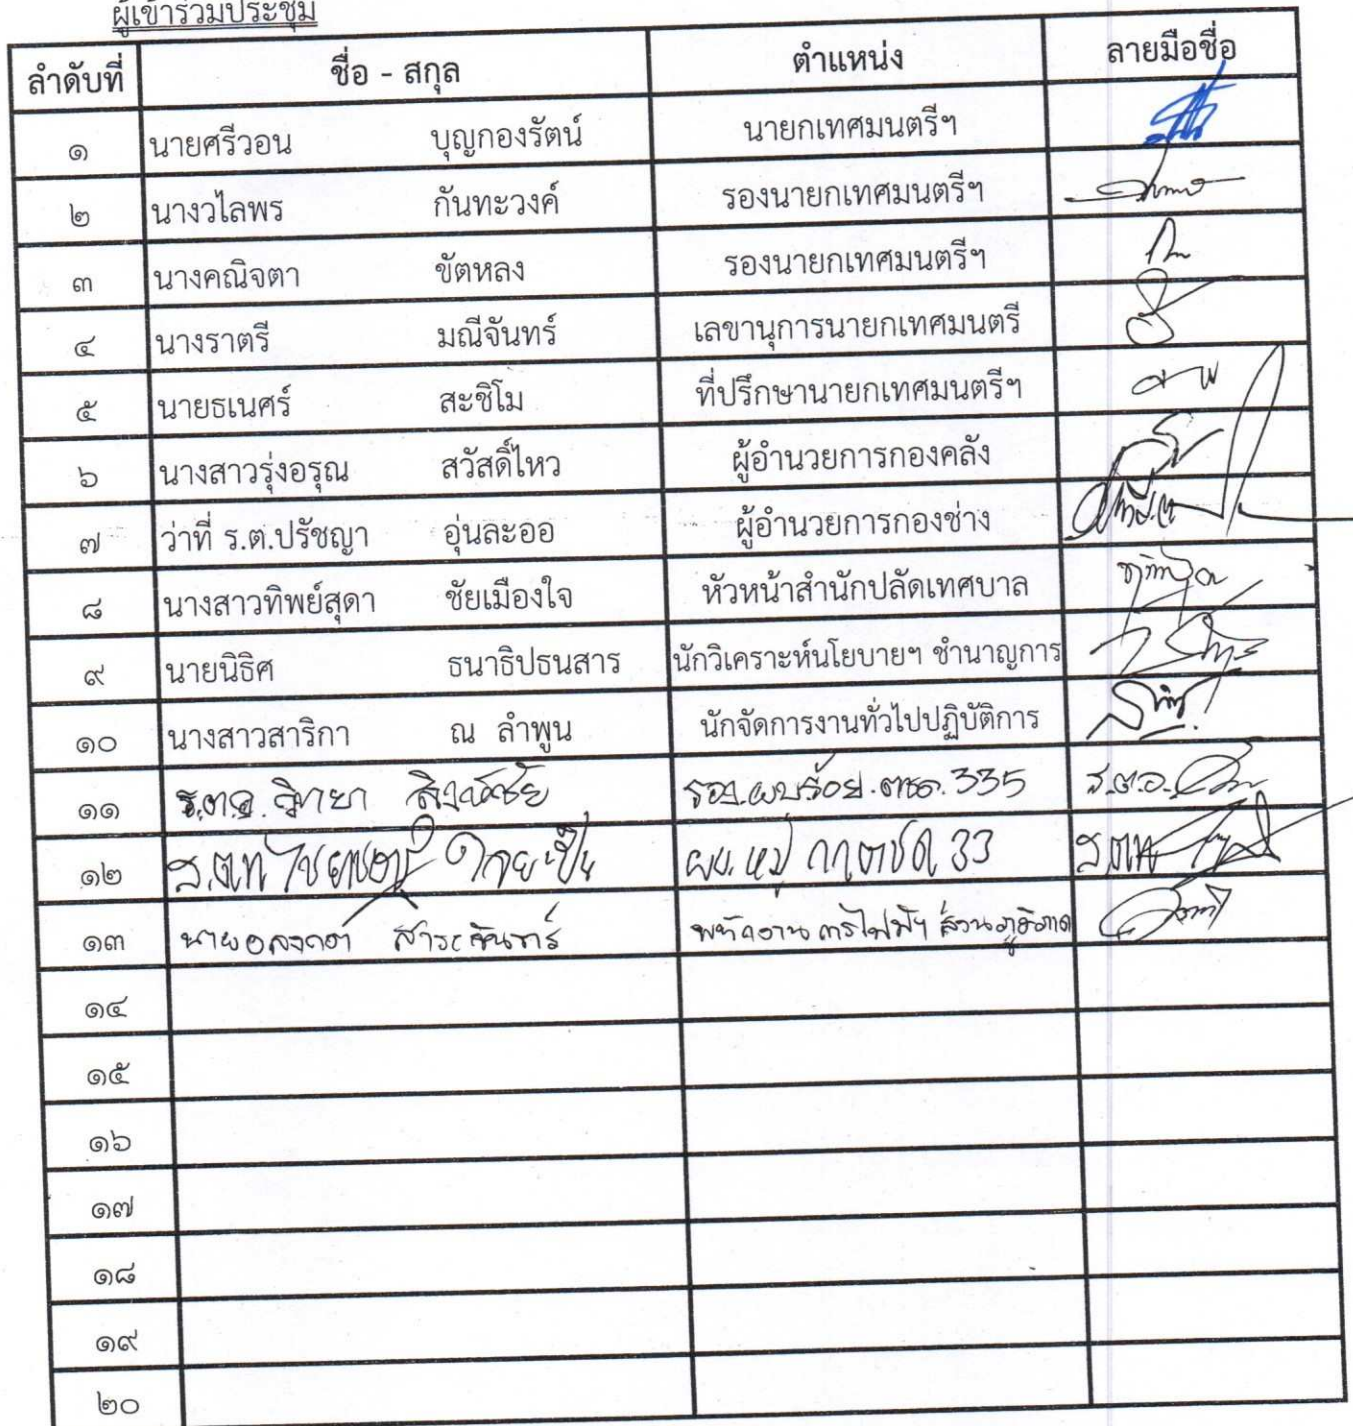 ผู้เข้าร่วมประชุม
ลำดับที่ ชื่อ - สกุล ตำแหน่ง ลายมือชื่อ
๑ นายศรีวอน บุญกองรัตน์ นายกเทศมนตรีฯ
๒ นางวไลพร กันทะวงค์ รองนายกเทศมนตรีฯ
๓ นางคณิจตา ขัตหลง รองนายกเทศมนตรีฯ
๔ นางราตรี มณีจันทร์ เลขานุการนายกเทศมนตรี
๕ นายธเนศร์ สะชิโม ที่ปรึกษานายกเทศมนตรีฯ
๖ นางสาวรุ่งอรุณ สวัสดิ์ไหว ผู้อำนวยการกองคลัง
๗ ว่าที่ ร.ต.ปรัชญา อุ่นละออ ผู้อำนวยการกองช่าง
๘ นางสาวทิพย์สุดา ชัยเมืองใจ หัวหน้าสำนักปลัดเทศบาล
๙ นายนิธิศ ธนาธิปธนสาร นักวิเคราะห์นโยบายฯ ชำนาญการ
๑๐ นางสาวสาริกา ณ ลำพูน นักจัดการงานทั่วไปปฏิบัติการ
๑๑ วิทยา รอง.ผบ.ร้อย.ตชด.335
๑๒ ส.ต.ท ผบ.หมู่ กก.ตชด 33 ส.ต.ท
๑๓ พนักงาน การไฟฟ้าฯ ส่วนภูมิภาค
๑๔
๑๕
๑๖
๑๗
๑๘
๑๙
๒๐